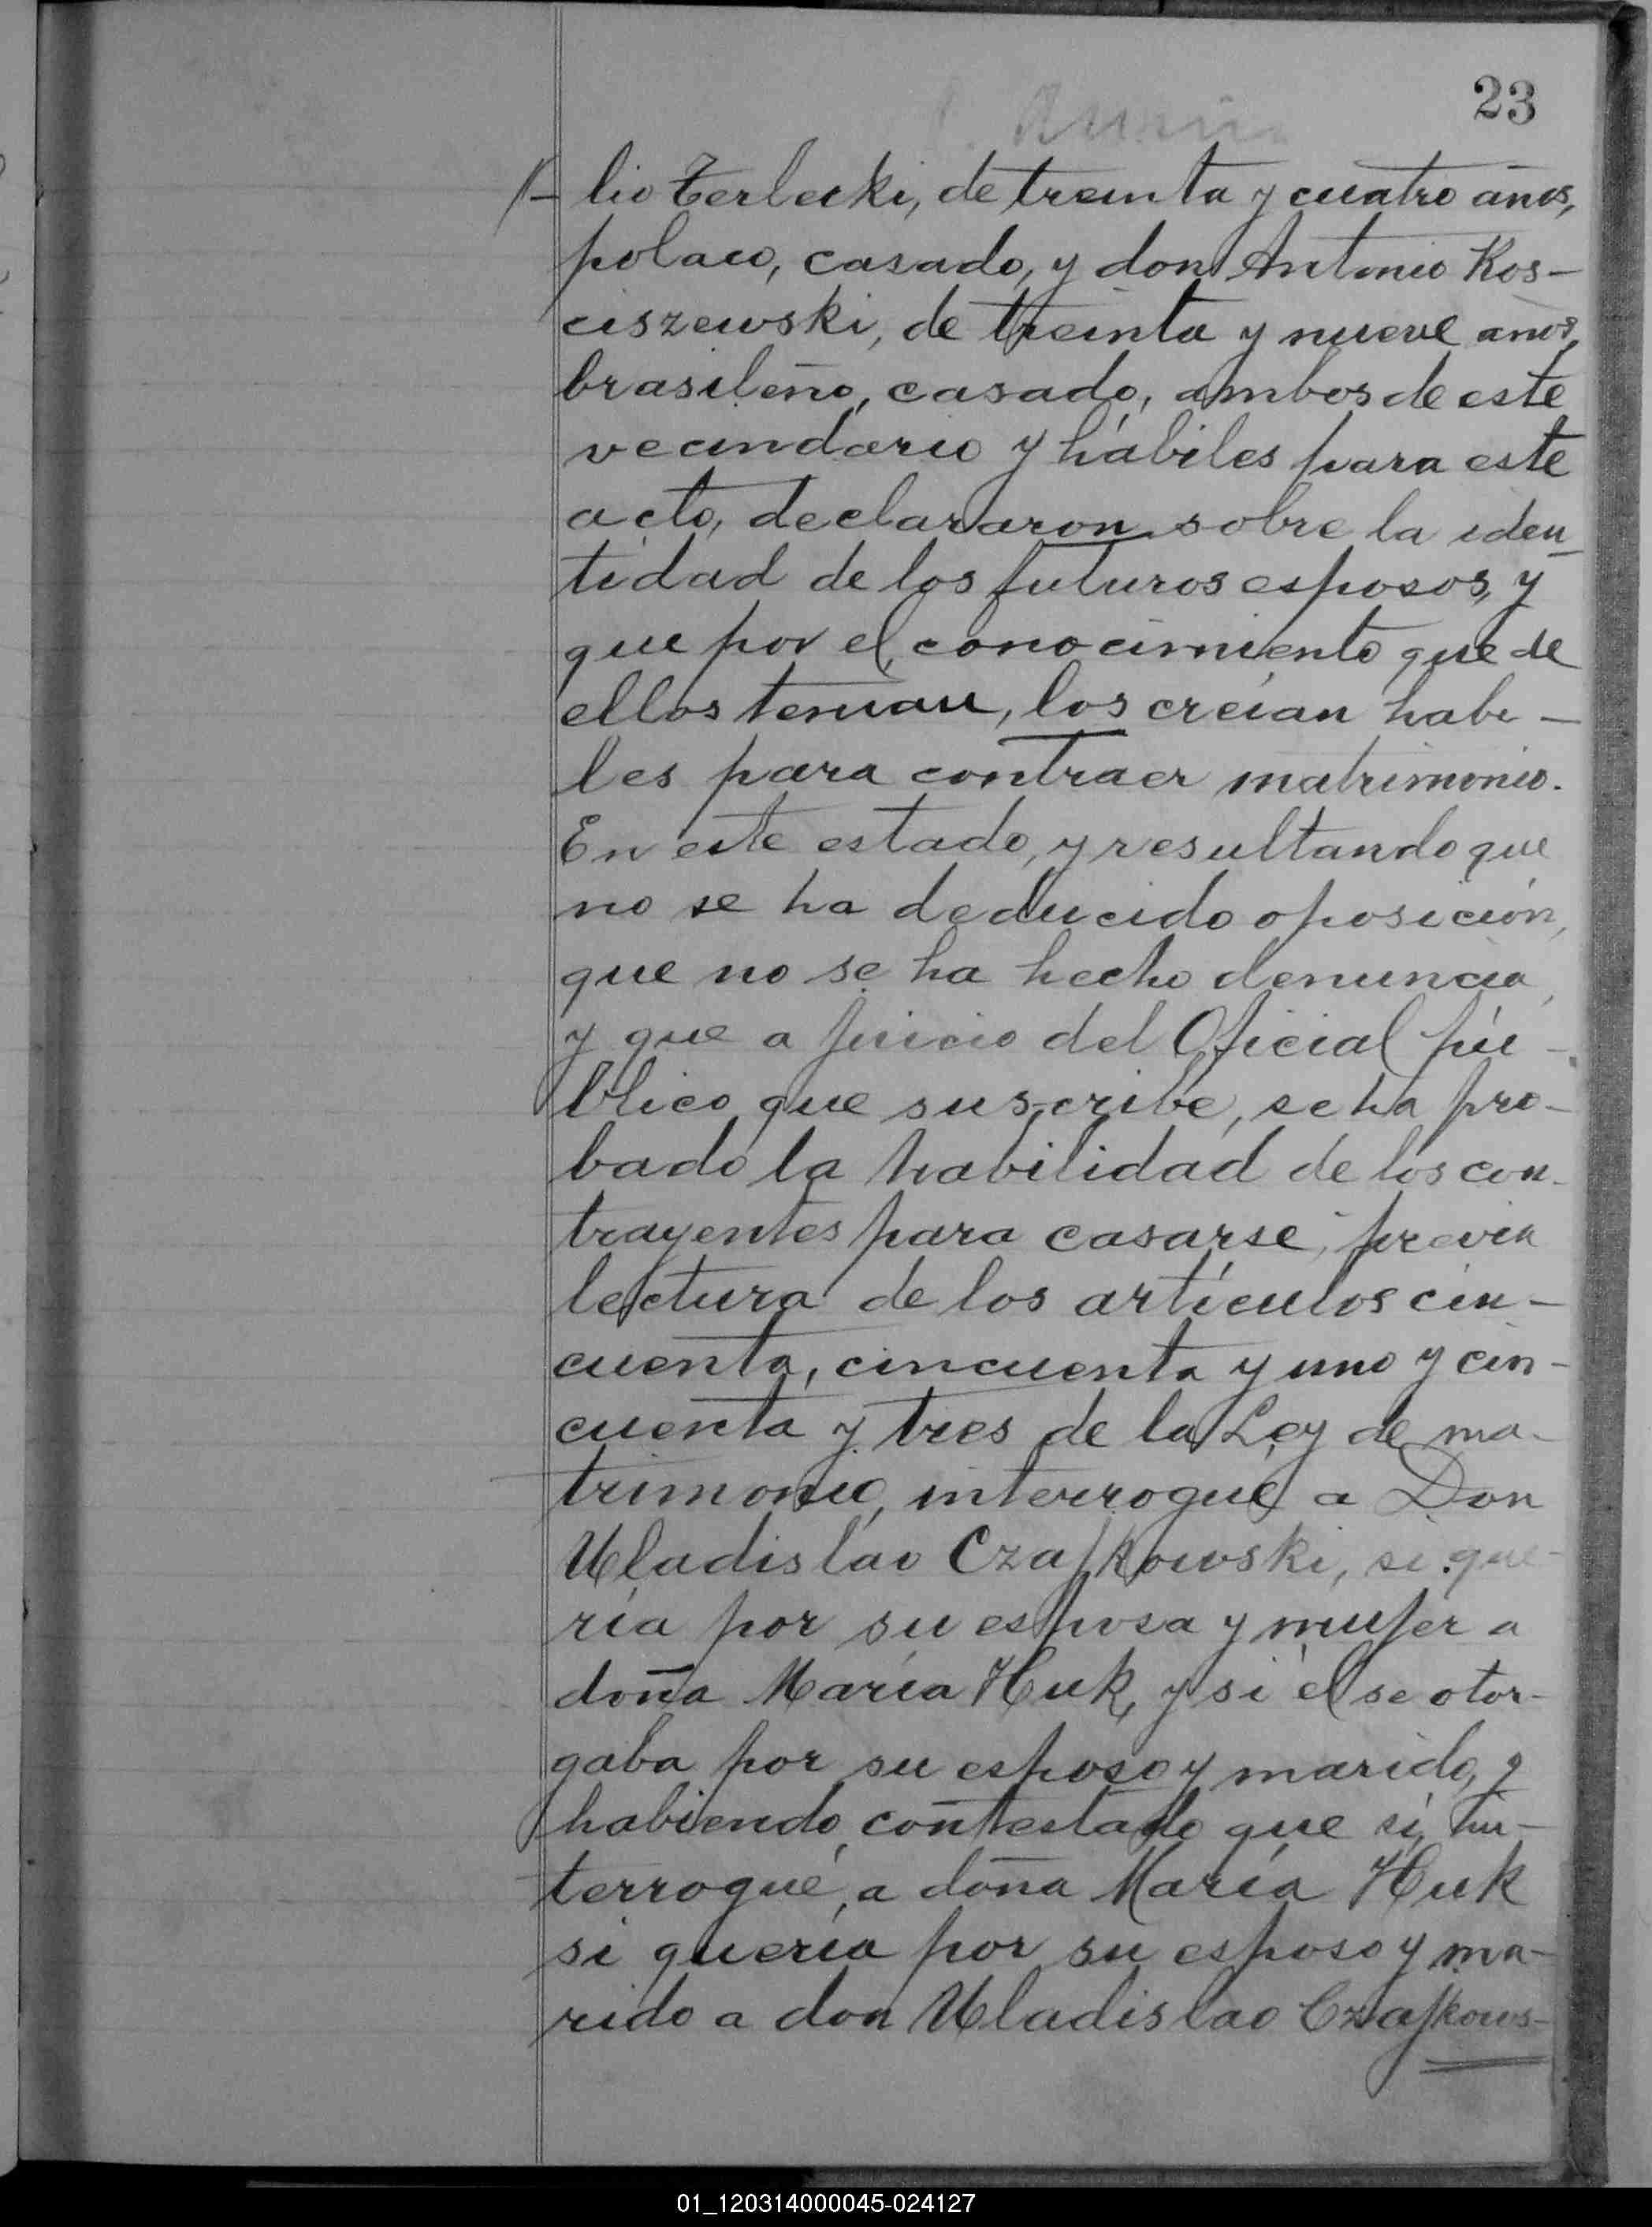 23
lio Terlecki, de treinta y cuatro años,
polaco, casado, y don Antonio Kos-
ciszewski, de treinta y nueve años,
brasileño, casado, ambos de este
vecindario y hábiles para este
acto, declararon sobre la iden-
tidad de los futuros esposos, y
que por el conocimiento que de
ellos tenian, los creían habi-
les para contraer matrimonio.
En este estado, y resultando que
no se ha deducido oposición,
que no se ha hecho denuncia,
y que a juicio del Oficial pú-
blico que suscribe, se ha pro-
bado la habilidad de los con-
trayentes para casarse, previa
lectura de los artículos cin-
cuenta, cincuenta y uno y cin-
cuenta y tres de la Ley de ma-
trimonio, interrogué a Don
Uladislao Czajkowski, si que-
ría por su esposa y mujer a
doña María Huk, y si él se otor-
gaba por su esposo y marido, y
habiendo contestado que si, in-
terrogué, a doña María Huk
si quería por su esposo y ma-
rido a don Uladislao Czajkows-
01_120314000045-024127